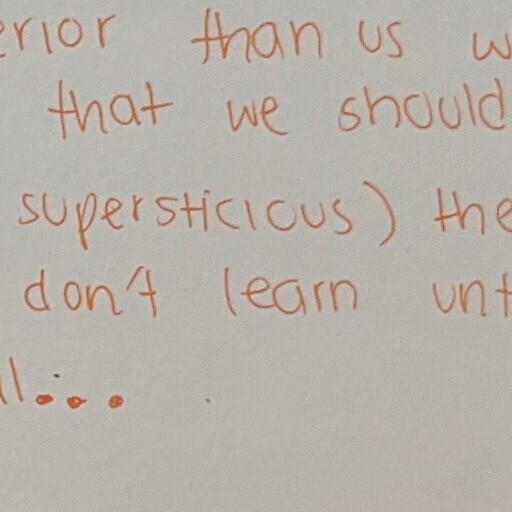 erior than us w
that we should
supersticious) the
don't learn unt
ll...